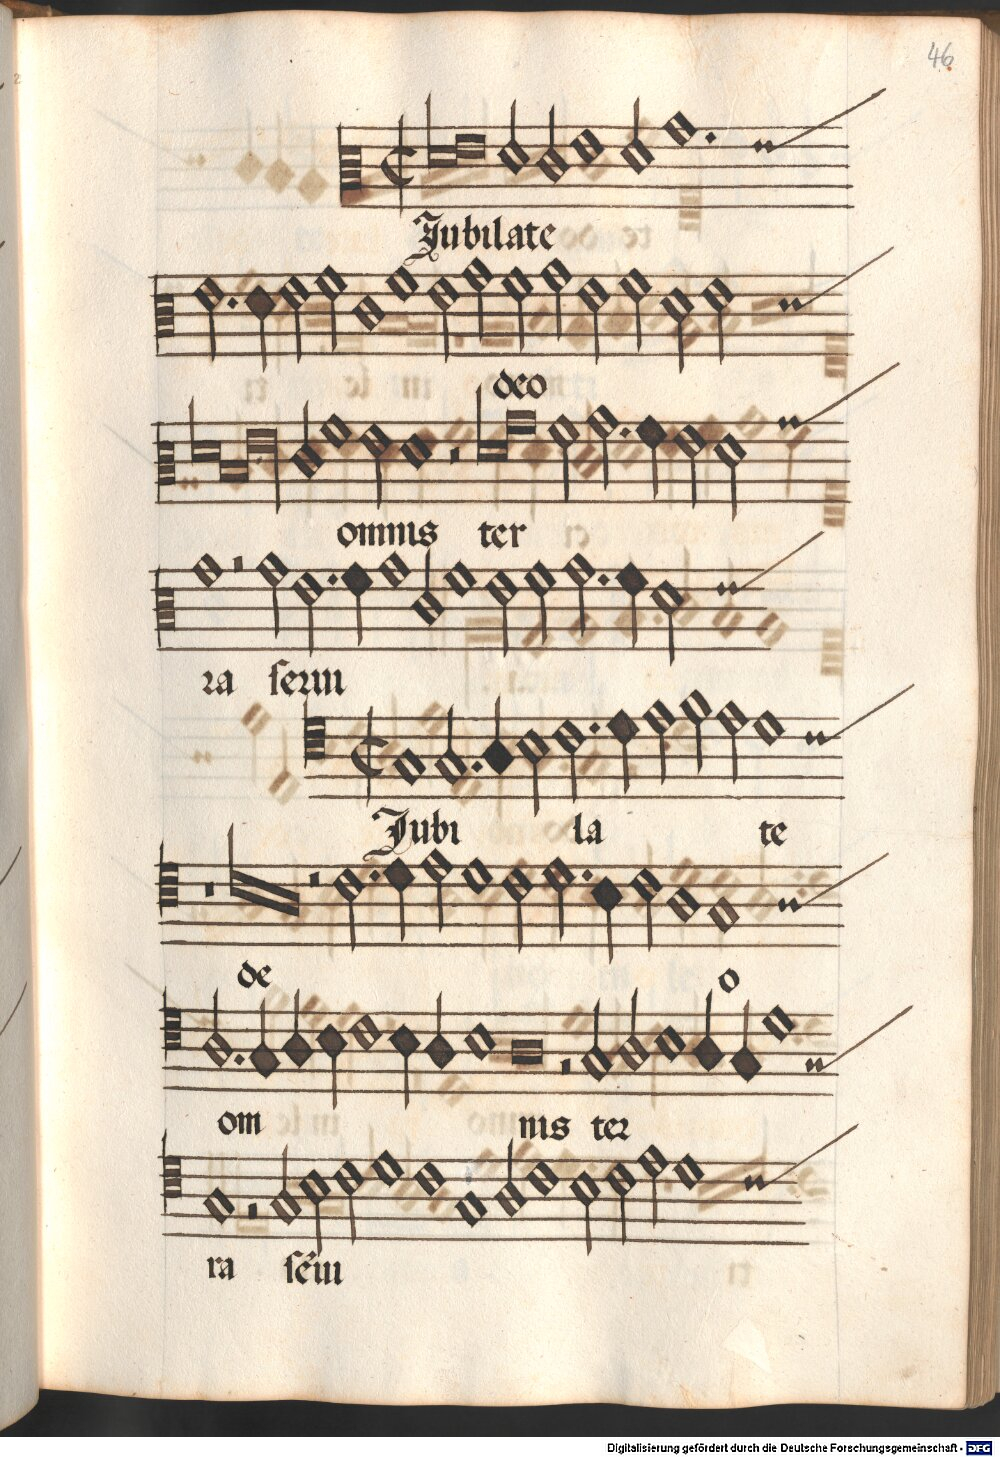 46
Jubilate
deo
omnis ter
ra serui
Jubi la te
de o
om nis ter
ra sēui
Digitalisierung gefördert durch die Deutsche Forschungsgemeinschaft - DFG